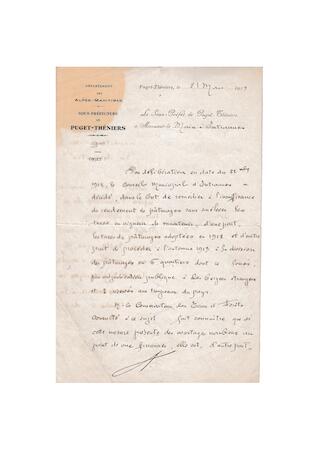 DÉPARTEMENT
DES
ALPES-MARITIMES
SOUS-PRÉFECTURE
DE
PUGET-THÉNIERS
OBJET
Puget-Théniers, le 21 Mars 1913
Le Sous-Préfet de Puget-Théniers
à Monsieur le Maire d'Entraunes
Par délibération en date du 22
1912, le Conseil Municipal d'Entraunes a
décidé, dans le but de remédier à l'insuffisance
de rendement des pâturages sans
taxes en vigueur de maintenir, d'une part,
les taxes de pâturages adoptées en 1912 et d'autre
part de procéder à l'automne 1913 à la division
des pâturages en 6 quartiers dont 4
publique, à des bergers étrangers
et 2 réservés aux du pays.
M. le Conservateur des Eaux et Forêts
consulté à ce sujet fait connaître que si
cette mesure présente des avantages
point de vue financier, elle est, d'autre part,